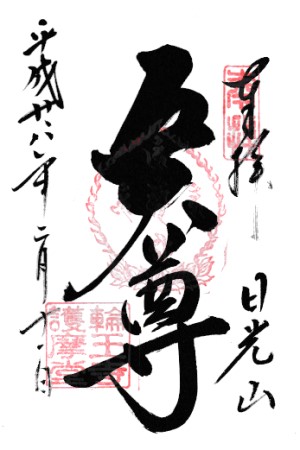 奉拝
日光山
五大尊
平成廿八年二月十一日
輪王寺
護摩堂